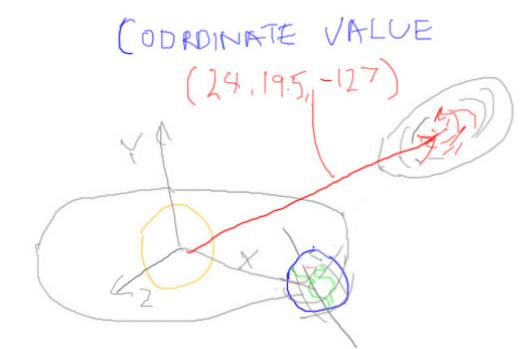 COORDINATE VALUE
(24,19.5,-127)
Y
X
Z